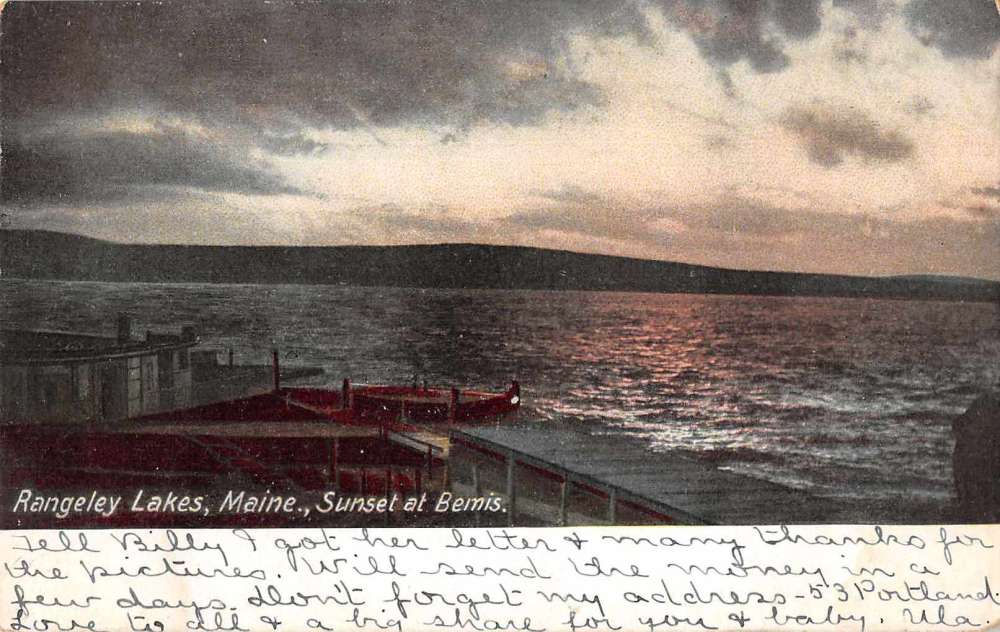 Rangeley Lakes, Maine., Sunset at Bemis.
Tell Billy I got her letter & many thanks for
the pictures. Will send the money in a
few days. Don't forget my address - 53 Portland.
Love to all & a big share for you & baby. Ula.